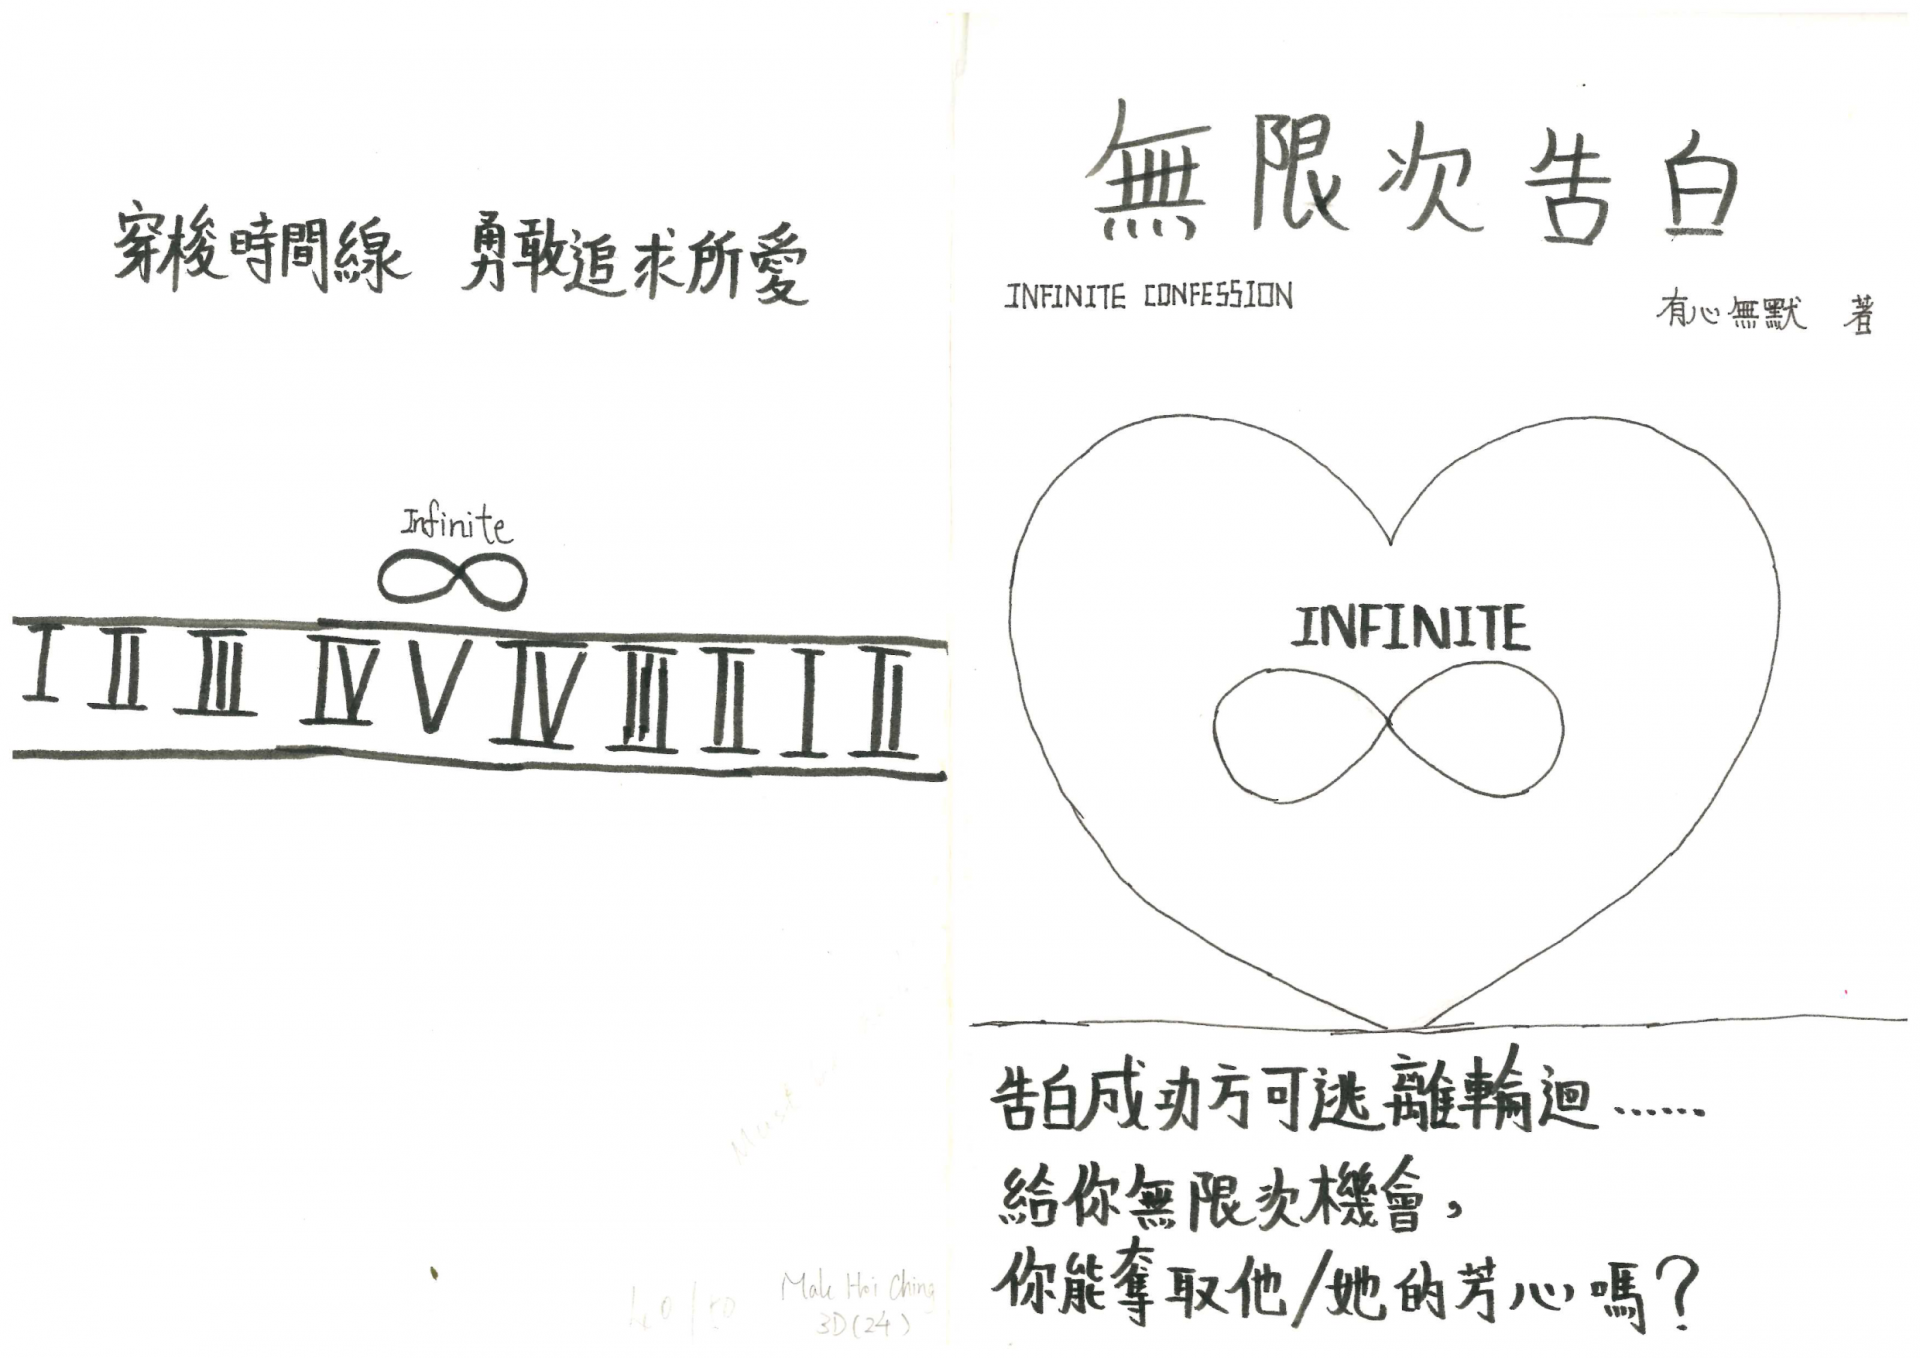 穿梭時間線 勇敢追求所愛
Infinite
I II III IV V IV III II I II
Mak Hoi Ching
3D(24)
無限次告白
INFINITE CONFESSION
有心無默 著
INFINITE
告白成功方可逃離輪迴……
給你無限次機會，
你能奪取他/她的芳心嗎？